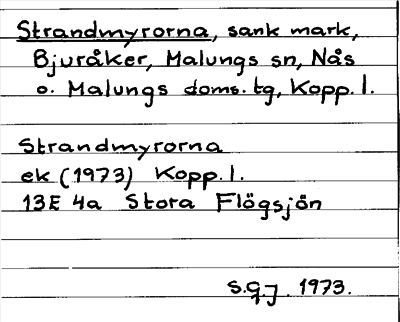 Strandmyrorna, sank mark,
Bjuråker, Malungs sn, Nås
o. Malungs doms. tg, Kopp. l.
Strandmyrorna
ek (1973) Kopp. l.
13E 4a Stora Flögsjön
S.G.J. 1973.